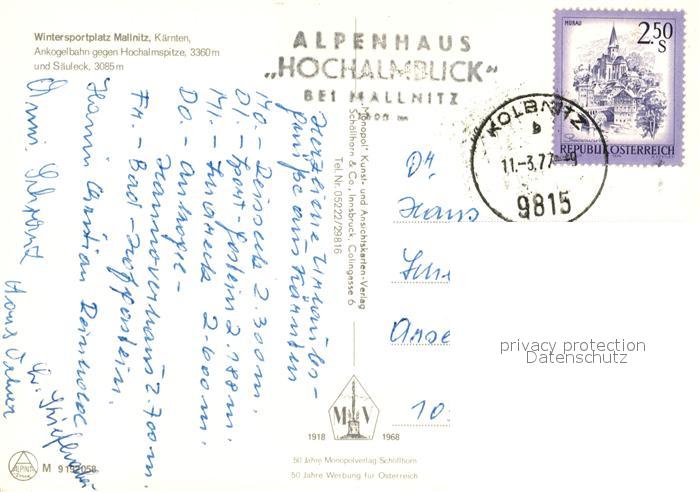 Wintersportplatz Mallnitz, Kärnten,
Ankogelbahn gegen Hochalmspitze, 3360 m
und Säuleck, 3085 m
ALPENHAUS
„HOCHALMBLICK"
BEI MALLNITZ
MURAU
2.50
S
REPUBLIK ÖSTERREICH
KOLBNITZ
b
11.-3.77-
9815
Herzliche Urlaubs-
grüße aus Kärnten
Mo. - Reisseck 2.300 m.
Di. - Sport-Gastein
Mi. -
Do. - Ankogel -
Hannoverhaus 2.700 m.
Fr. - Bad-Hofgastein.
Hanni Christian Reinhold
Hans
"Monopol" Kunst- und Ansichtskarten-Verlag
Schöllhorn & Co., Innsbruck, Collingasse 6
Tel. Nr. 05222/29816
Hans
10
privacy protection
Datenschutz
M V
1918 1968
50 Jahre Monopolverlag Schöllhorn
50 Jahre Werbung für Österreich
ALPINA
Druck
M 9192058